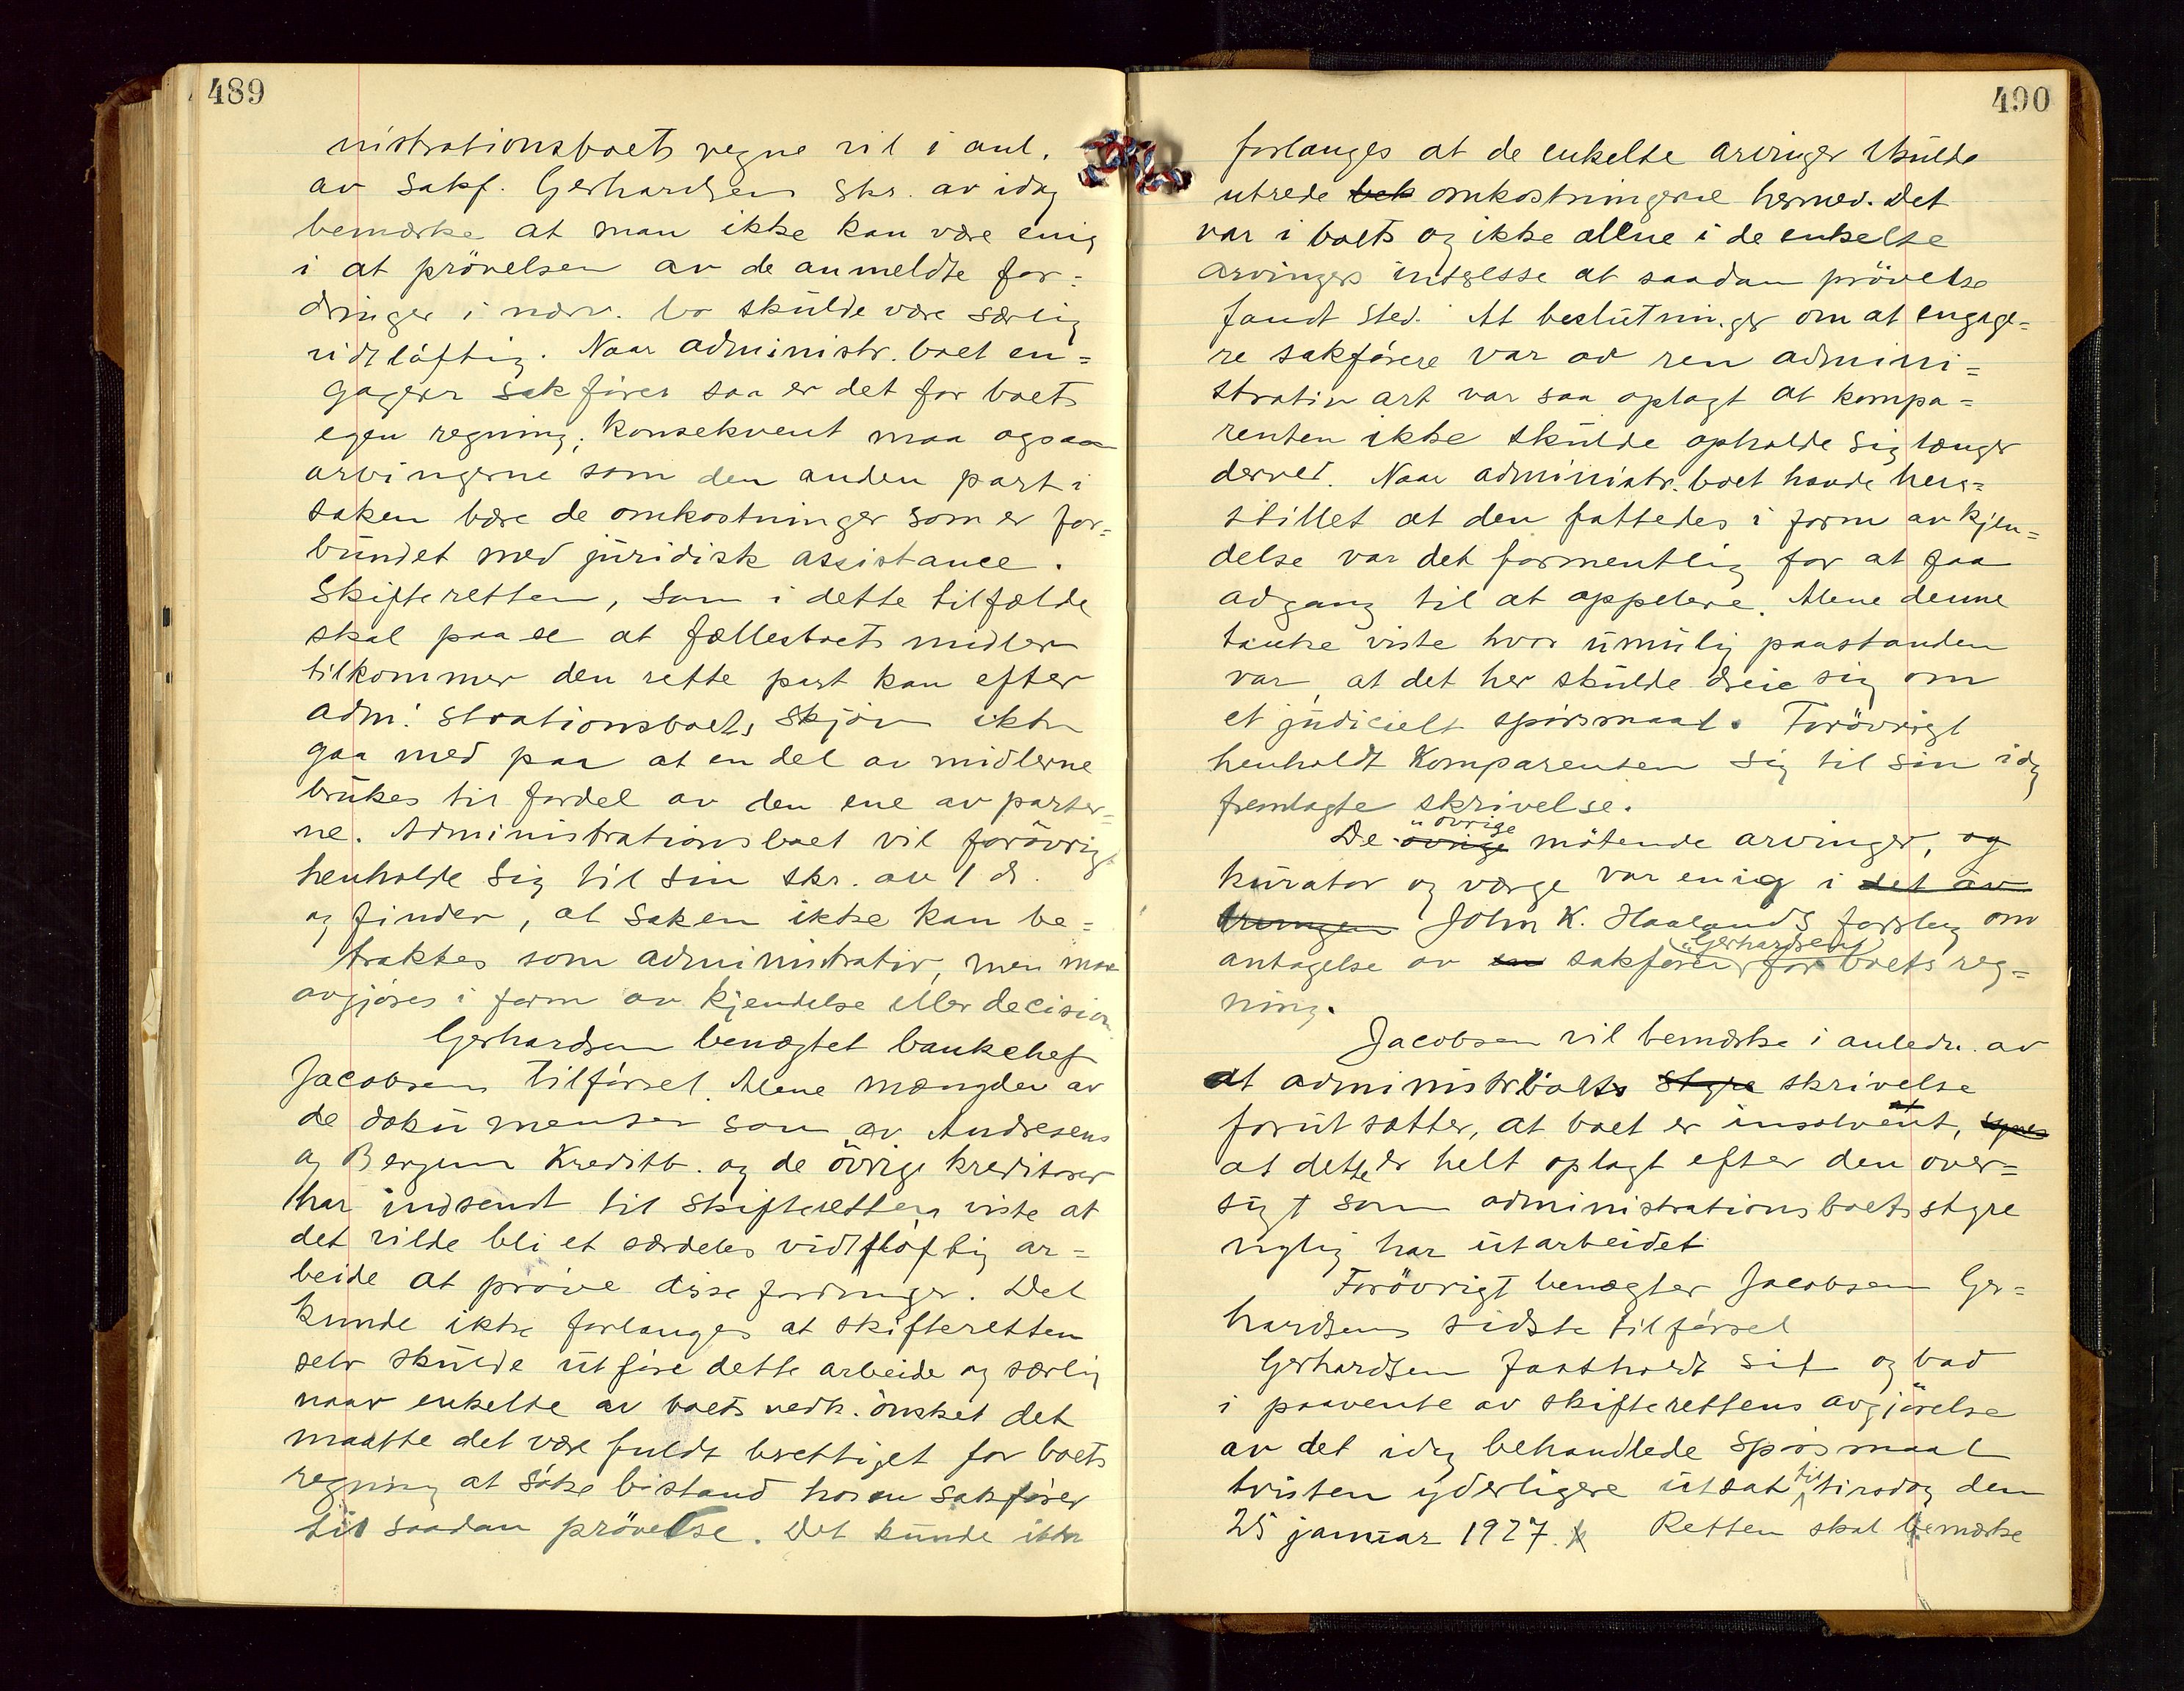 489
nistrationsboets vegne vil i anl.
av sakf. Gerhardsen skr. av idag
bemærke at man ikke kan være enig
i at prövelsen av de anmeldte for=
dringer i nærv. bo skulde være særlig
vidtlöftig. Naar administr. boet en=
gagerer sakförer saa er det for boets
egen regning; konsekvent maa ogsaa
arvingerne som den anden part i
saken bære de omkostninger som er for=
bundet med juridisk assistance.
Skifteretten, som i dette tilfælde
skal paase at fællesboets midler
tilkommer den rette part kan efter
administrationsboets skjön ikke
gaa med paa at en del av midlerne
brukes til fordel av den ene av parter=
ne. Administrationsboet vil forövrig
henholde sig til sin skr. av 1 ds.
og finder, at saken ikke kan be=
traktes som administrativ, men maa
avgjöres i form av kjendelse eller decision.
Gerhardsen benegtet bankchef
Jacobsens tilförsel. Alene mængden av
de dokumenter som av Andresens
og Bergens Kreditb. og de övrige kreditorer
har indsendt til skifteretten viste at
det vilde bli et særdeles vidtlöftig ar=
beide at pröve disse fordringer. Det
kunde ikke forlanges at skifteretten
selv skulde utföre dette arbeide og særlig
naar enkelte av boets vedk. önsket det
maatte det være fuldt berettiget for boets
regning at söke bistand hos en sakförer
til saadan prövelse. Det kunde ikke
490
forlanges at de enkelte arvinger skulde
utrede bek omkostningerne hermed. Det
var i boets og ikke allene i de enkelte
arvingers interesse at saadan prövelse
fandt sted. At beslutninger om at engage=
re sakförere var av ren admini=
strativ art var saa oplagt at kompa=
renten ikke skulde opholde sig længer
derved. Naar administr. boet havde hen=
stillet at den fattedes i form av kjen=
delse var det formentlig for at faa
adgang til at appelere. Alene denne
tanke viste hvor umulig paastanden
var, at det her skulde dreie sig om
et judicielt spörsmaal. Forövrigt
henholdt Komparenten sig til sin idag
fremlagte skrivelse.
De övrige övrige mötende arvinger, og
kurator og værge var enig i det av
John K. Haalands forslag om
antagelse av en sakförer Gerhardsen for boets reg=
ning.
Jacobsen vil bemærke i anledn. av
at administr.boets styre skrivelse
forutsætter, at boet er insolvent,
at dette er helt oplagt efter den over=
sigt som administrationsboets styre
nylig har utarbeidet
Forövrigt benegter Jacobsen Ger=
hardsens sidste tilförsel
Gerhardsen fastholdt sit og bad
i paavente av skifterettens avgjörelse
av det idag behandlede spörsmaal
tvisten yderligere utsat til tirsdag den
25 januar 1927. Retten skal bemærke